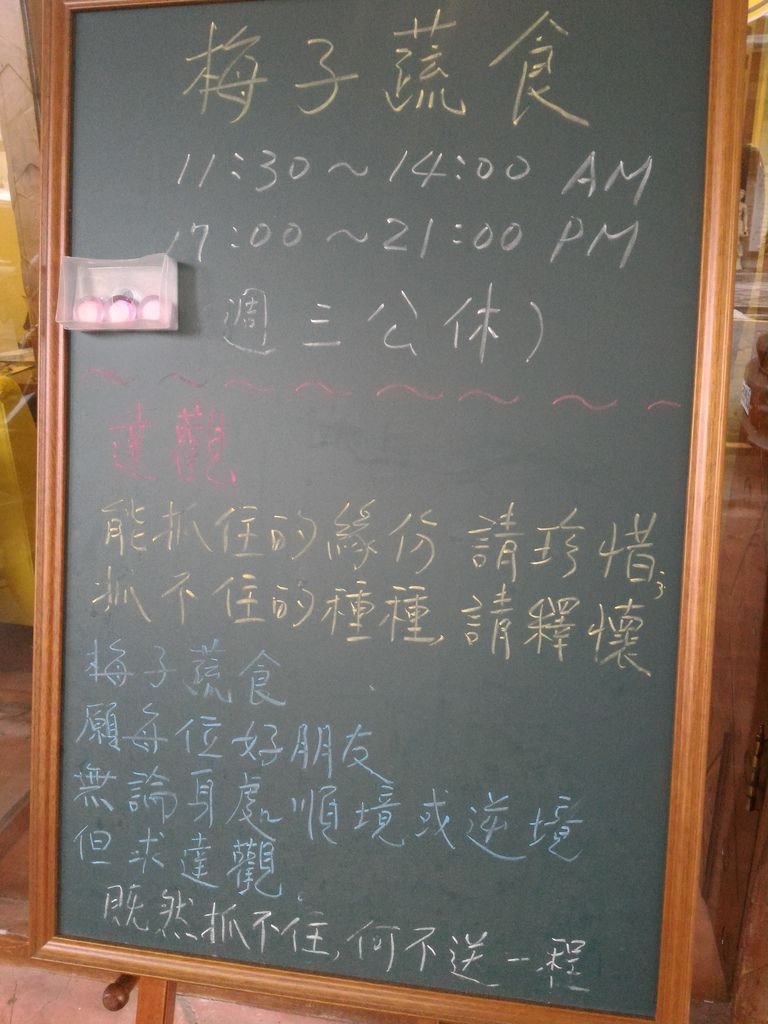 梅子蔬食
11:30～14:00 AM
17:00～21:00 PM
週三公休)
達觀
能抓住的緣份 請珍惜;
抓不住的種種,請釋懷
梅子蔬食
願每位好朋友
無論身處順境或逆境
但求達觀.
既然抓不住,何不送一程